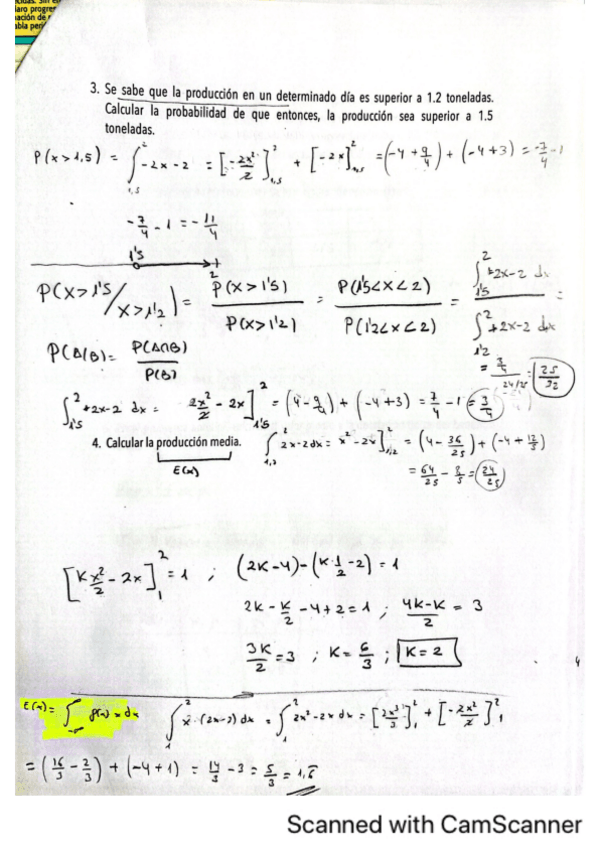 3. Se sabe que la producción en un determinado día es superior a 1.2 toneladas.
Calcular la probabilidad de que entonces, la producción sea superior a 1.5
toneladas.
P(x>1,5) = ∫_{1,5}^{2} -2x-2 = [-2x²/2]_{1,5}^{2} + [-2x]_{1,5}^{2} = (-4+9/4) + (-4+3) = -7/4 -1
-7/4 - 1 = -11/4
1'5 2
P(X>1'5/X>1'2) = P(X>1'5)/P(X>1'2) = P(1'5<X<2)/P(1'2<X<2) = ∫_{1'5}^{2} +2x-2 dx / ∫_{1'2}^{2} +2x-2 dx =
= 3/4 / 24/25 = 25/32
P(A/B) = P(A∩B)/P(B)
∫_{1'5}^{2} +2x-2 dx = 2x²/2 - 2x]_{1'5}^{2} = (4-9/4) + (-4+3) = 7/4 - 1 = 3/4
4. Calcular la producción media.
E(x)
∫_{1,2}^{2} 2x-2dx = x²-2x]_{1,2}^{2} = (4-36/25) + (-4+12/5)
= 64/25 - 8/5 = 24/25
[Kx²/2 - 2x]_{1}^{2} = 1 ; (2K-4)-(K·1/2-2) = 1
2K - K/2 - 4+2 = 1 ; 4K-K/2 = 3
3K/2 = 3 ; K = 6/3 ; K = 2
E(x) = ∫_{-∞} f(x) x dx ∫_{1}^{2} x·(2x-2) dx = ∫_{1}^{2} 2x²-2x dx = [2x³/3]_{1}^{2} + [-2x²/2]_{1}^{2}
= (16/3 - 2/3) + (-4+1) = 14/3 - 3 = 5/3 = 1,6
Scanned with CamScanner